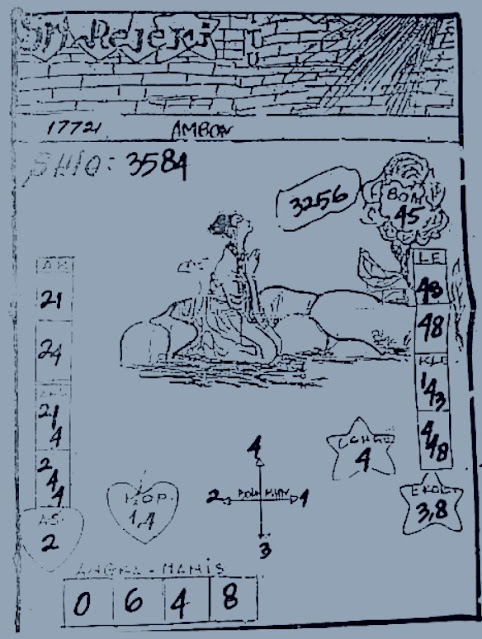 Sri Rejeki
17721 AMBON
SHIO: 3584
3256
BOM
45
21
24
21
4
2
4
4
AS
2
LE
48
48
KLE
1
43
4
48
HOP
1,4
4
2 4
3
4
EKOR
3,8
ANGKA-MANIS
0 6 4 8